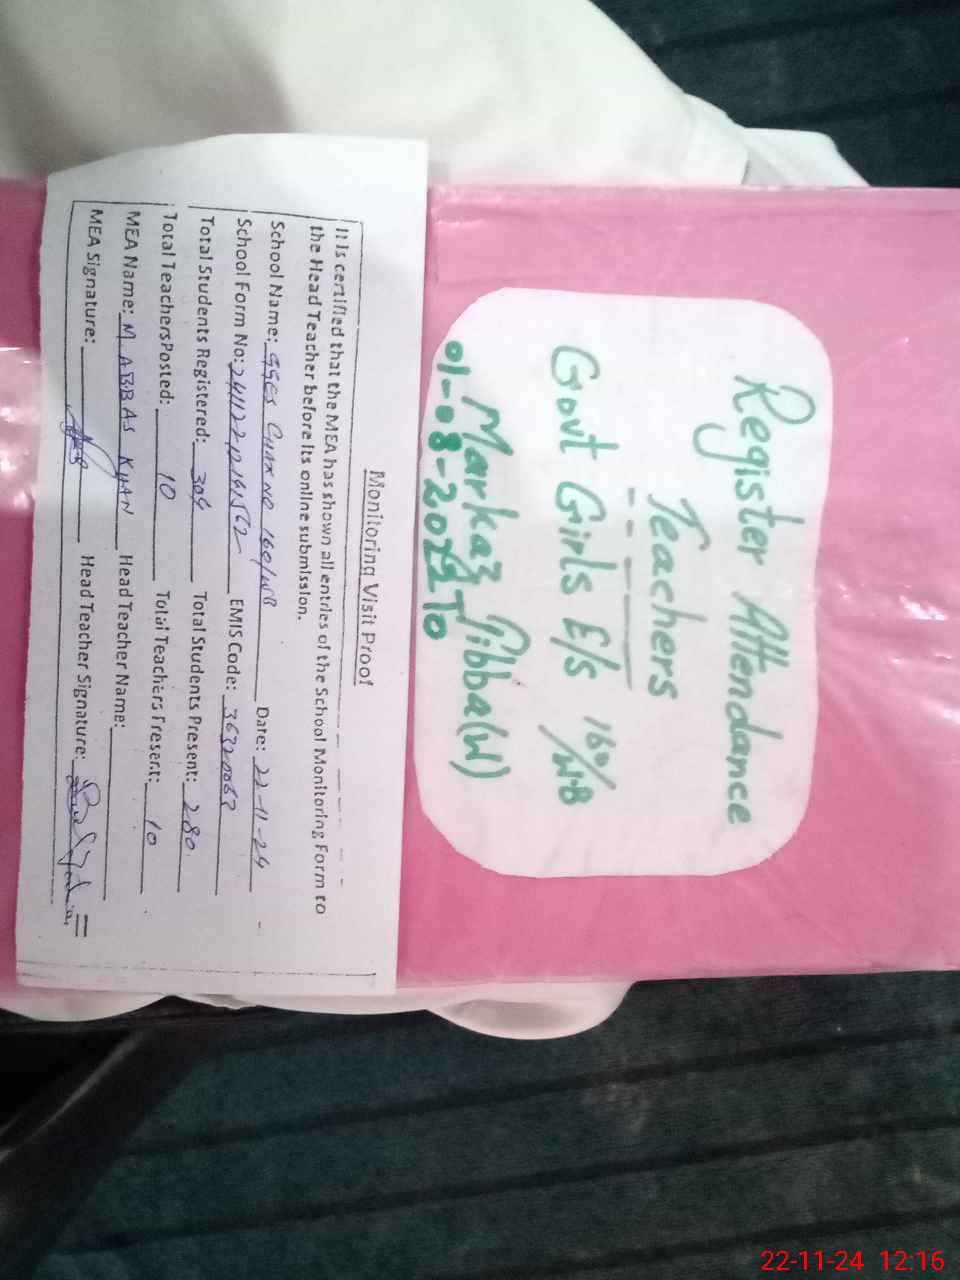 Register Attendance
Teachers
Govt Girls E/S 160/W.B
Markaz Tibba(W)
01-08-2022 To
Monitoring Visit Proof
It is certified that the MEA has shown all entries of the School Monitoring Form to
the Head Teacher before its online submission.
School Name: GGES CHAK NO 160/WB Date: 22-11-24
School Form No: EMIS Code: 36320063
Total Students Registered: 304 Total Students Present: 280
Total Teachers Posted: 10 Total Teachers Present: 10
MEA Name: M ABBAS KHAN Head Teacher Name:
MEA Signature: Head Teacher Signature:
22-11-24 12:16